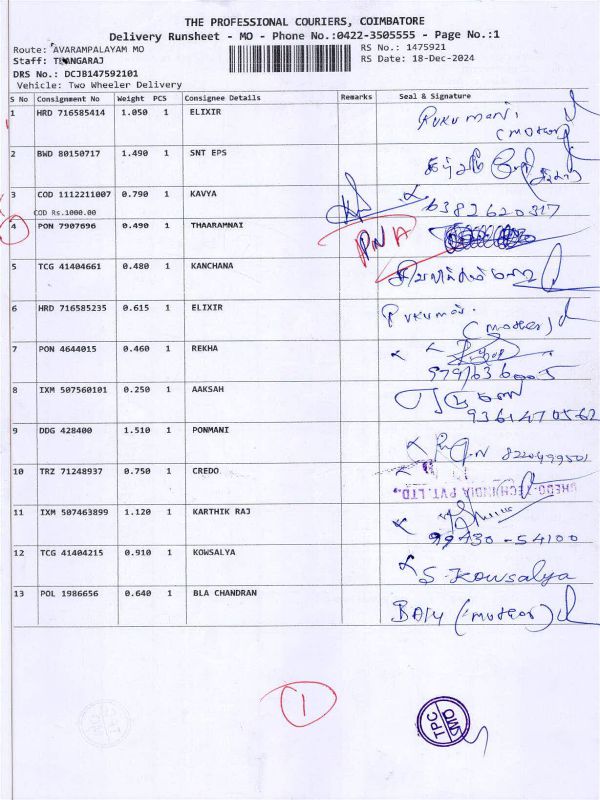 THE PROFESSIONAL COURIERS, COIMBATORE
Delivery Runsheet - MO - Phone No.:0422-3505555 - Page No.:1
Route: AVARAMPALAYAM MO
RS No.: 1475921
Staff: THANGARAJ
RS Date: 18-Dec-2024
DRS No.: DCJB147592101
Vehicle: Two Wheeler Delivery
S No Consignment No Weight PCS Consignee Details Remarks Seal & Signature
1 HRD 716585414 1.050 1 ELIXIR
2 BWD 80150717 1.490 1 SNT EPS
3 COD 1112211007 0.790 1 KAVYA 6382620317
COD Rs.1000.00
4 PON 7907696 0.490 1 THAARAMNAI PNA
5 TCG 41404661 0.480 1 KANCHANA
6 HRD 716585235 0.615 1 ELIXIR
7 PON 4644015 0.460 1 REKHA
8 IXM 507560101 0.250 1 AAKSAH
9361470562
9 DDG 428400 1.510 1 PONMANI
10 TRZ 71248937 0.750 1 CREDO
PVT. LTD.,
11 IXM 507463899 1.120 1 KARTHIK RAJ
99430-54100
12 TCG 41404215 0.910 1 KOWSALYA S. Kowsalya
13 POL 1986656 0.640 1 BLA CHANDRAN
1
TPC
MO